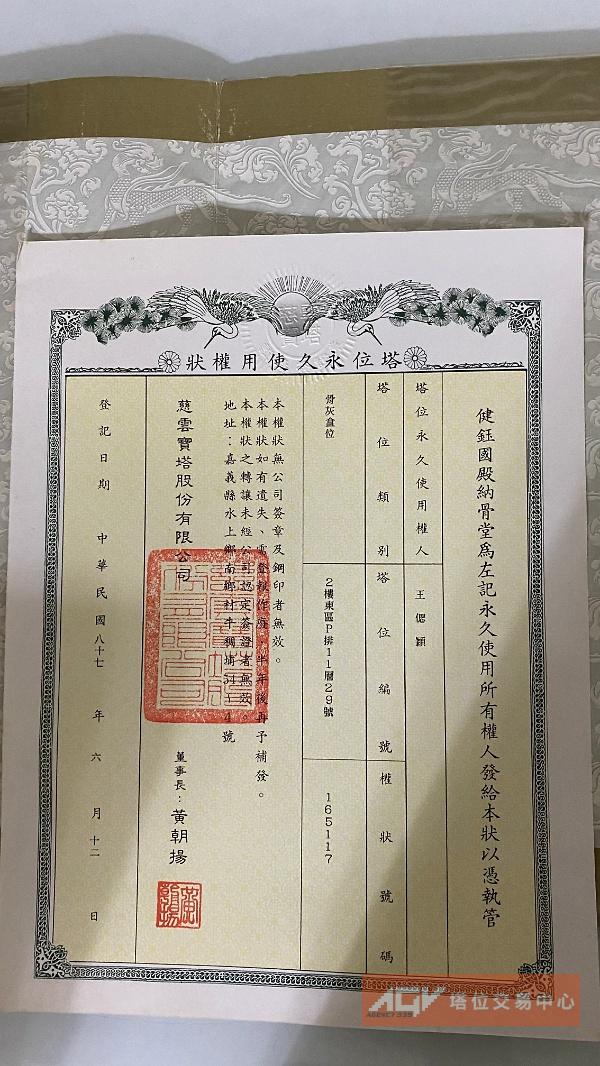 塔位永久使用權狀
健鈺國殿納骨堂為左記永久使用所有權人發給本狀以憑執管
塔位永久使用權人
王偲穎
塔位類別
塔位編號
權狀號碼
骨灰盒位
2樓東區P排11層29號
165117
本權狀無公司簽章及鋼印者無效。
本權狀如有遺失、需登報作廢，半年後再予補發。
本權狀之轉讓未經公司認定簽證者無效。
地址：嘉義縣水上鄉南鄉村牛稠埔51-4號
慈雲寶塔股份有限公司
董事長：黃朝揚
登記日期 中華民國八十七年六月十二日
AGV 塔位交易中心
AGENCY 339